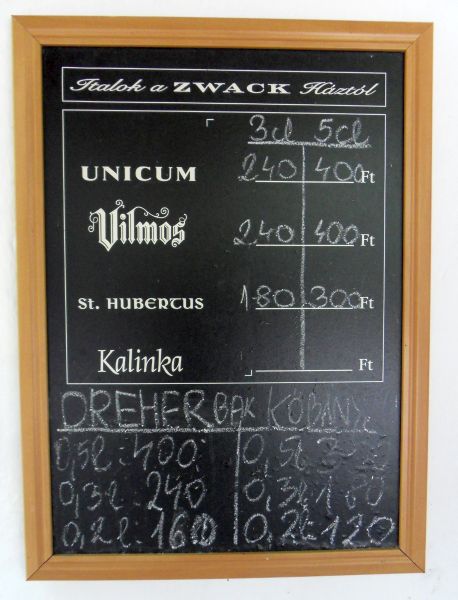 Italok a ZWACK Háztól
3cl 5cl
UNICUM 240 400 Ft
Vilmos 240 400 Ft
St. HUBERTUS 180 300 Ft
Kalinka Ft
DREHER BAK KŐBÁNY.
0,5l: 400 0,5l: 3
0,3l: 240 0,3l: 180
0,2l: 160 0,2l: 120